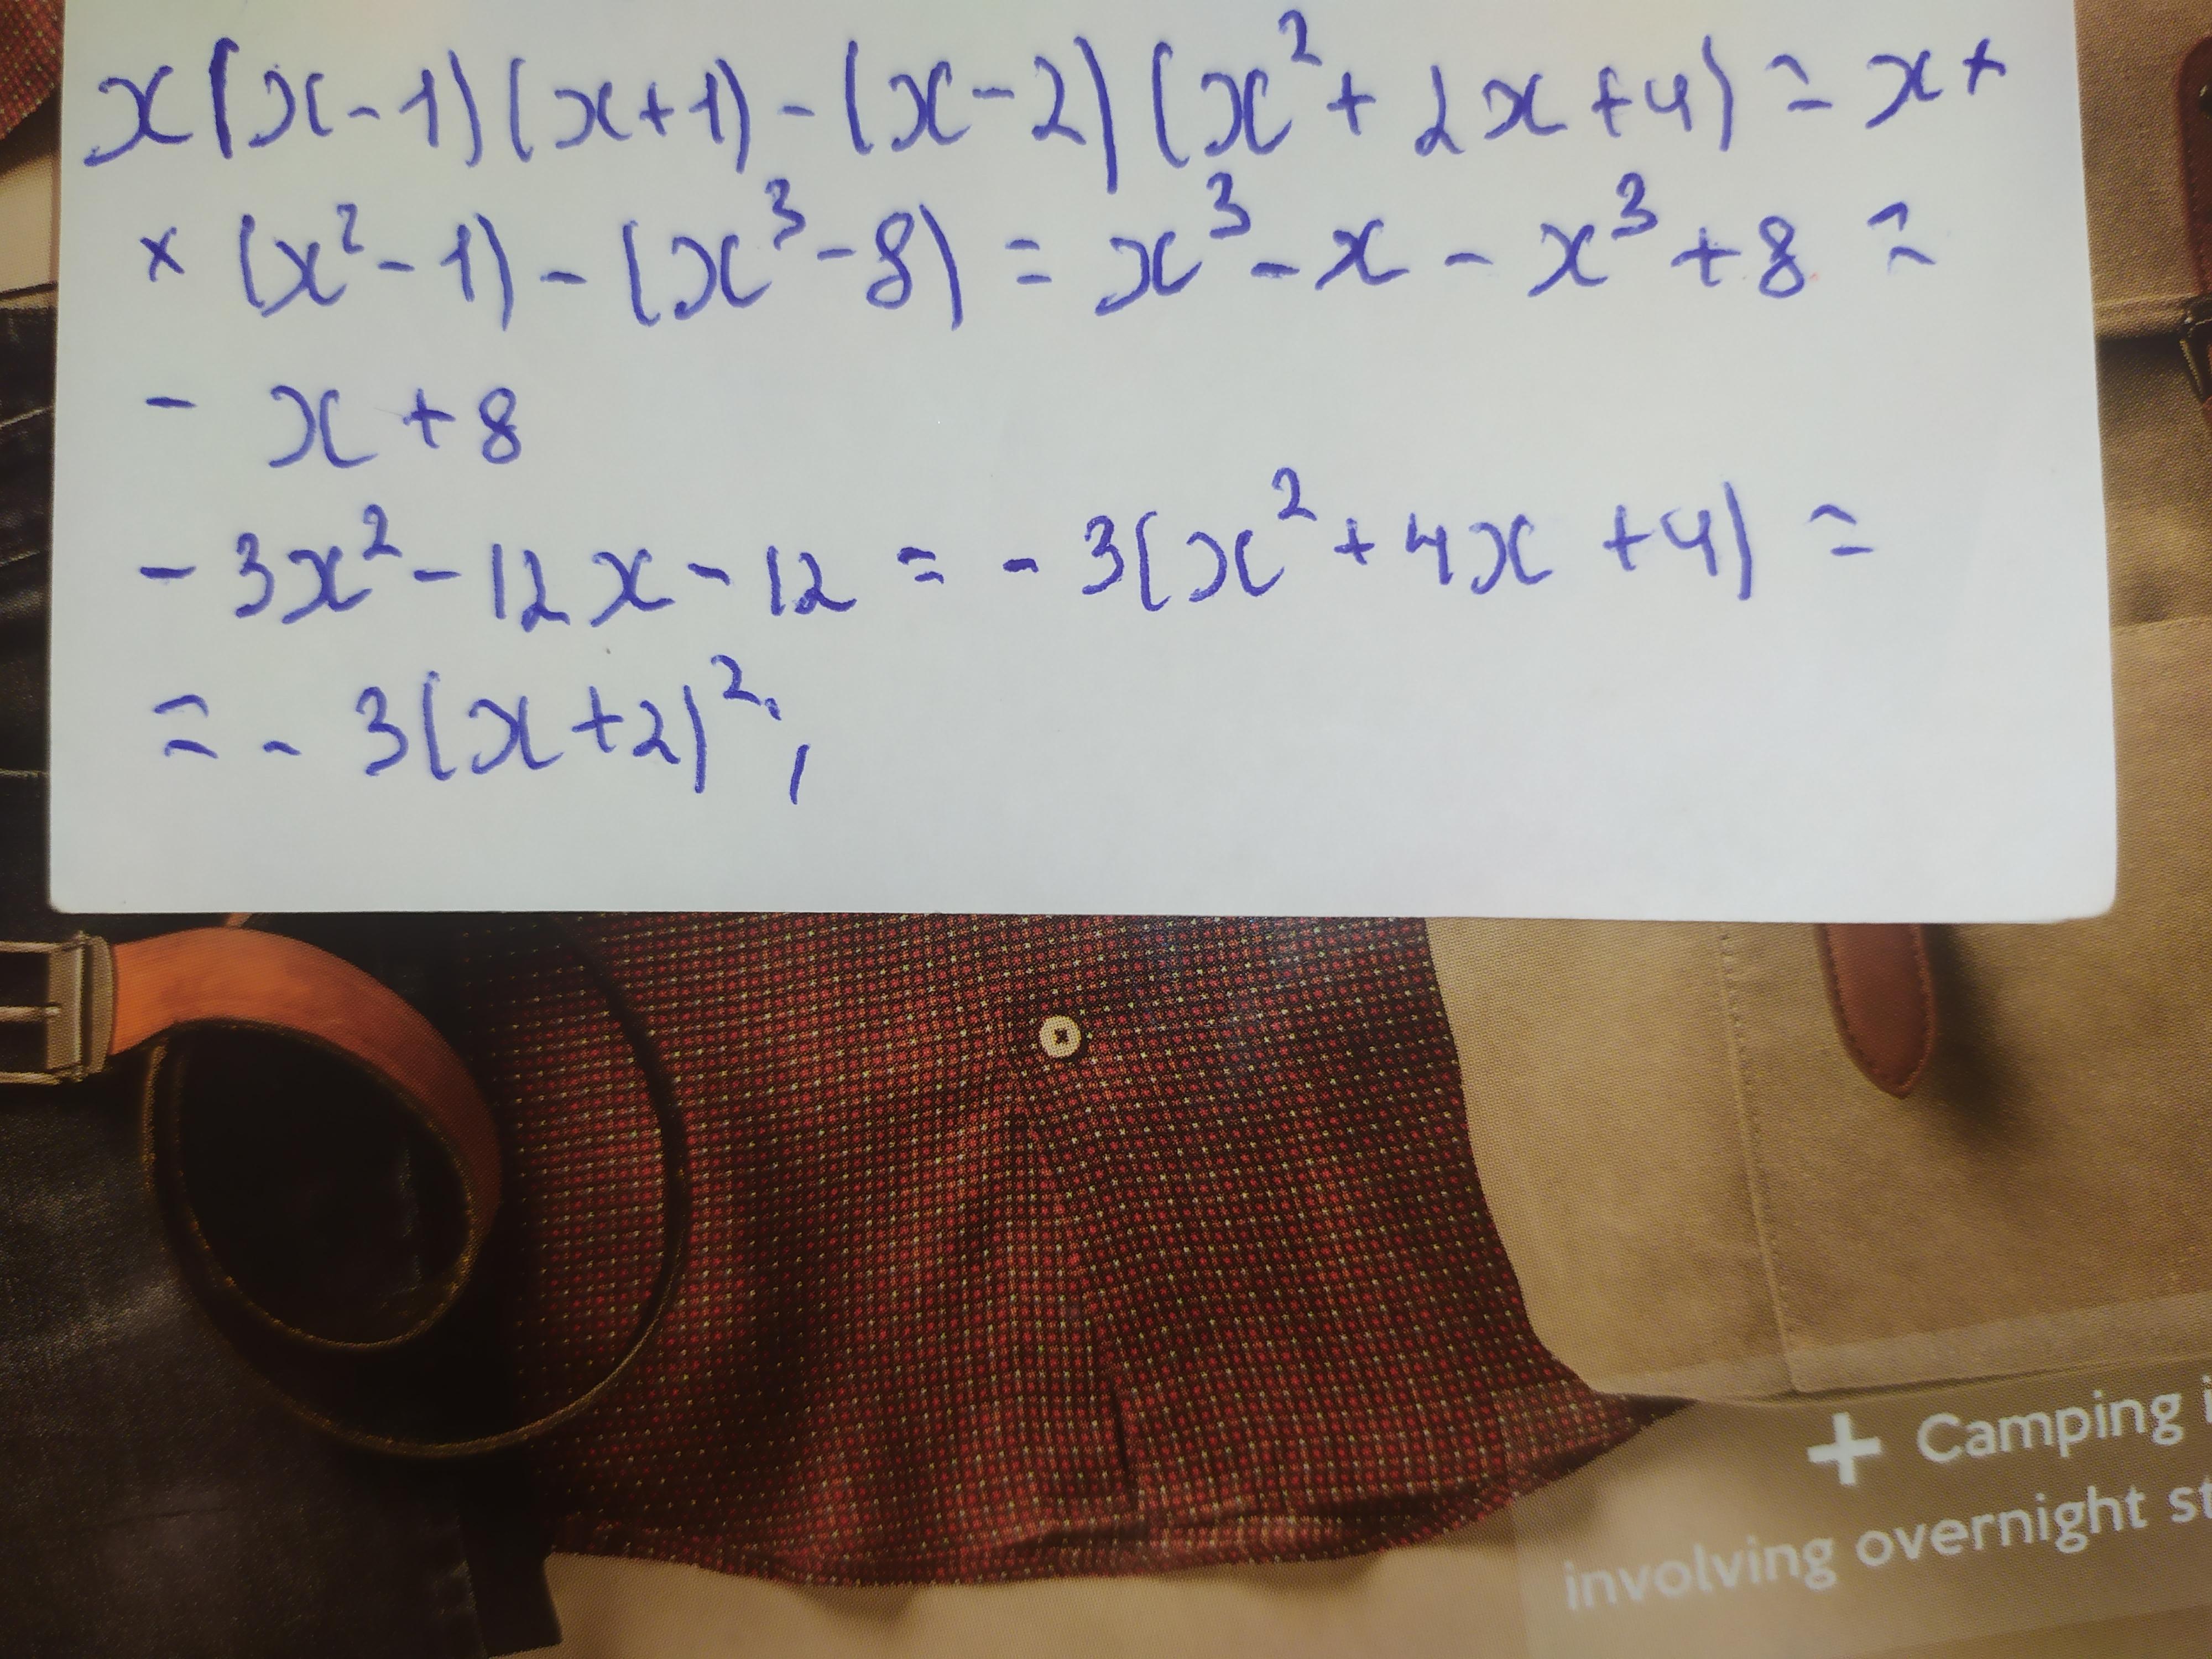 x(x-1)(x+1)-(x-2)(x²+2x+4)=x×
×(x²-1)-(x³-8)=x³-x-x³+8=
-x+8
-3x²-12x-12=-3(x²+4x+4)=
=-3(x+2)²;
+ Camping
involving overnight